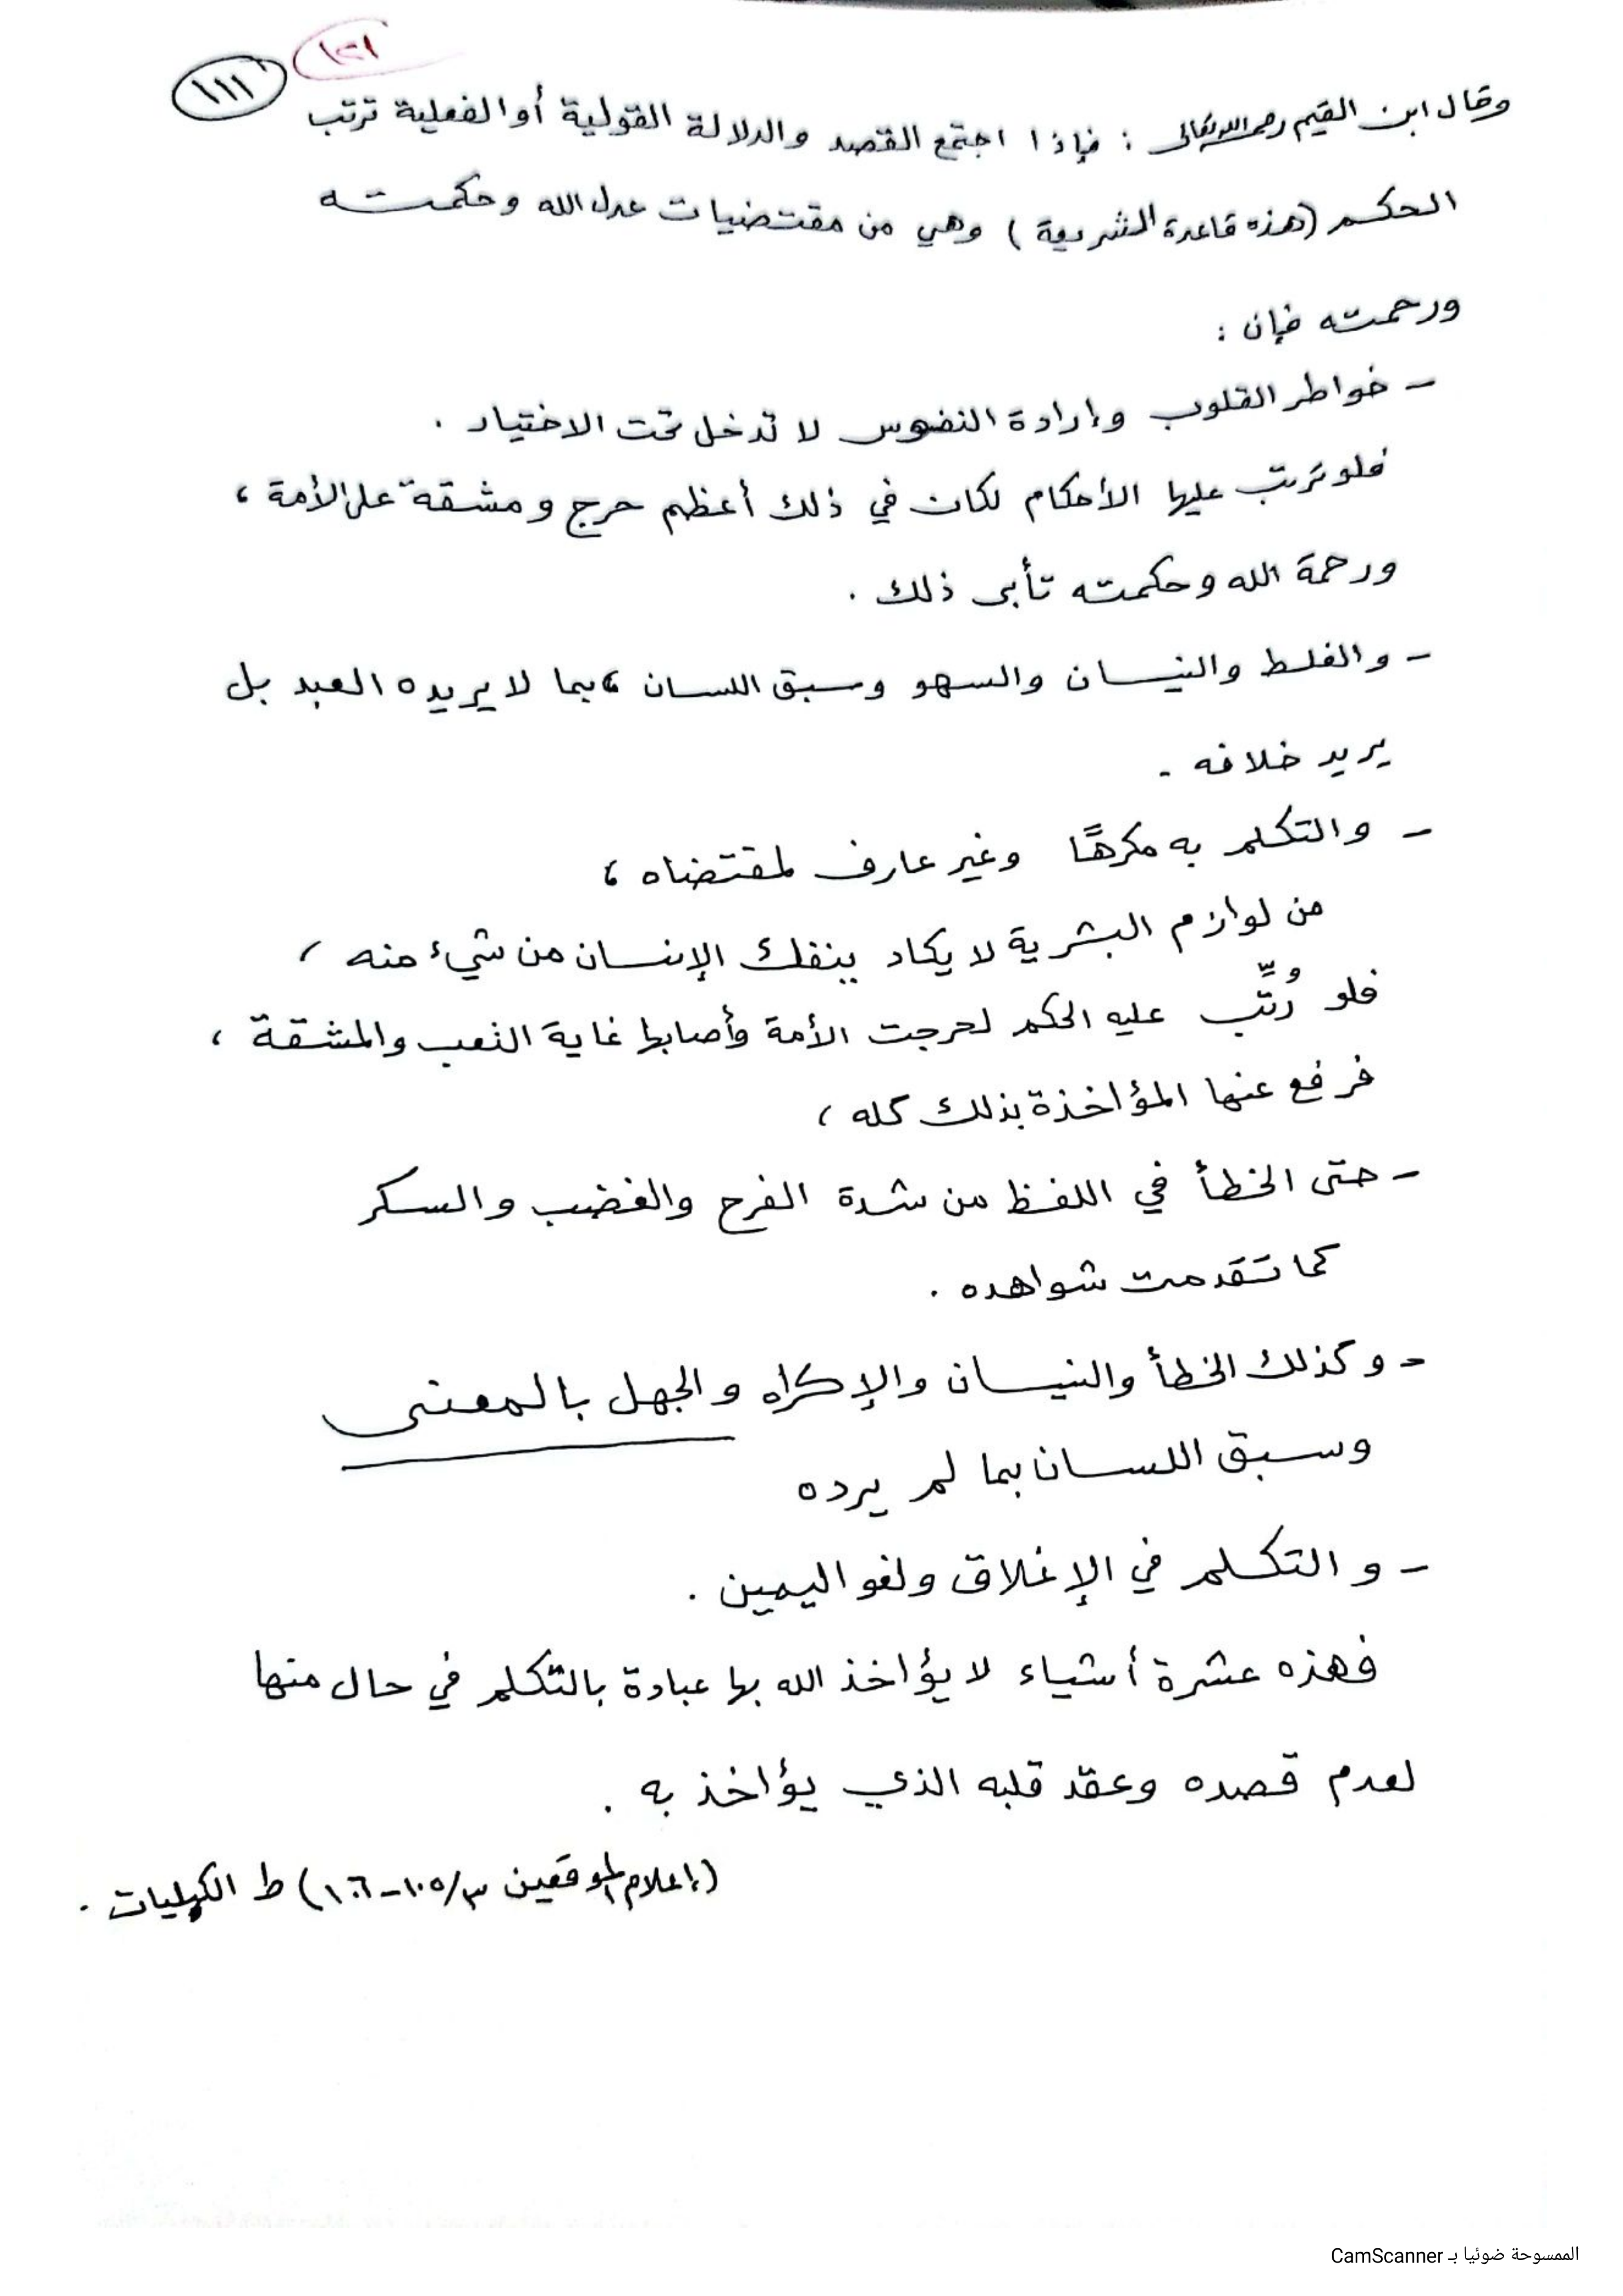 ١٢١
١١١
وقال ابن القيم رحمه الله تعالى : فإذا اجتمع القصد والدلالة القولية أو الفعلية ترتب
الحكم (هذه قاعدة الشريعة ) وهي من مقتضيات عدل الله وحكمته
ورحمته فإن :
- خواطر القلوب وإرادة النفوس لا تدخل تحت الاختيار .
فلو ترتب عليها الأحكام لكان في ذلك أعظم حرج ومشقة على الأمة ،
ورحمة الله وحكمته تأبى ذلك .
- والغلط والنسيان والسهو وسبق اللسان ، بما لا يريده العبد بل
يريد خلافه .
- والتكلم به مكرهًا وغير عارف لمقتضاه ،
من لوازم البشرية لا يكاد ينفك الإنسان من شيء منه ،
فلو رُتِّب عليه الحكم لحرجت الأمة وأصابها غاية التعب والمشقة ،
فرفع عنها المؤاخذة بذلك كله ،
- حتى الخطأ في اللفظ من شدة الفرح والغضب والسكر
كما تقدمت شواهده .
- وكذلك الخطأ والنسيان والإكراه والجهل بالمعنى
وسبق اللسان بما لم يرده
- والتكلم في الإغلاق ولغو اليمين .
فهذه عشرة أشياء لا يؤاخذ الله بها عبادة بالتكلم في حال منها
لعدم قصده وعقد قلبه الذي يؤاخذ به .
(إعلام الموقعين ٣/١٠٥-١٠٦) ط الكليات .
الممسوحة ضوئيا بـ CamScanner